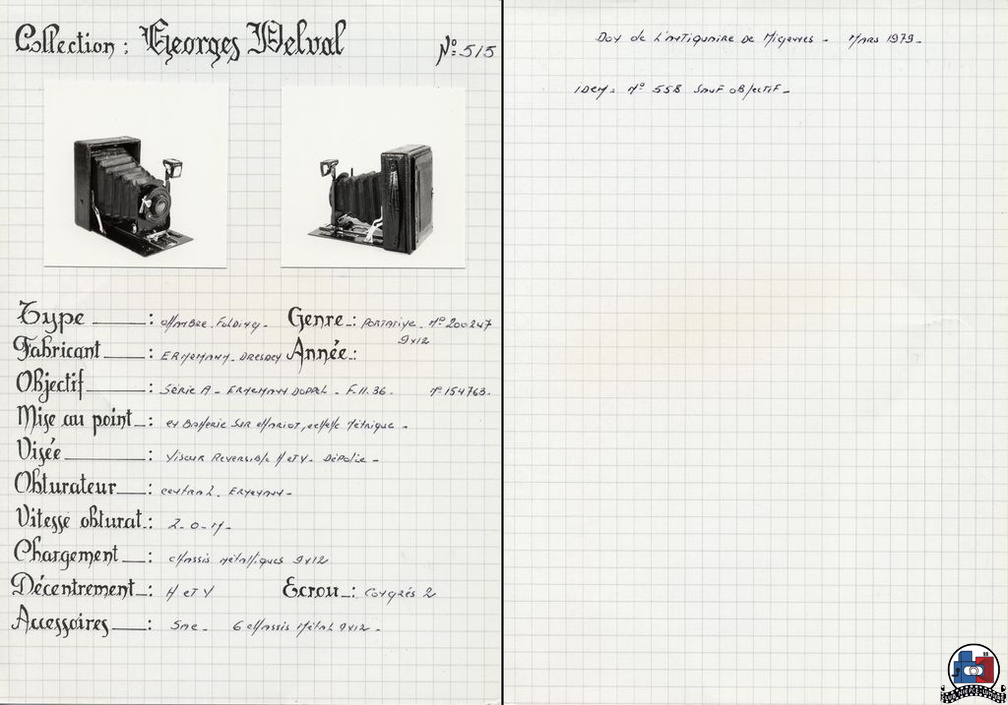 Collection : Georges Delval N°: 515
Type : Chambre Folding. Genre : Portative. N° 200247
9x12
Fabricant : Ernemann. Dresden Année :
Objectif : Série A - Ernemann Doppel - F.11.36. N° 154763.
Mise au point : en Batterie sur chariot, échelle métrique -
Visée : Viseur Reversible H et V. Dépolie -
Obturateur : central. Ernemann -
Vitesse obturat : Z - O - M -
Chargement : chassis métalliques 9x12
Décentrement : H et V Ecrou : Congrés 2
Accessoires : Sac - 6 chassis métal 9x12 -
Don de L'antiquaire de Migennes - Mars 1979 -
idem : N° 558 sauf objectif -